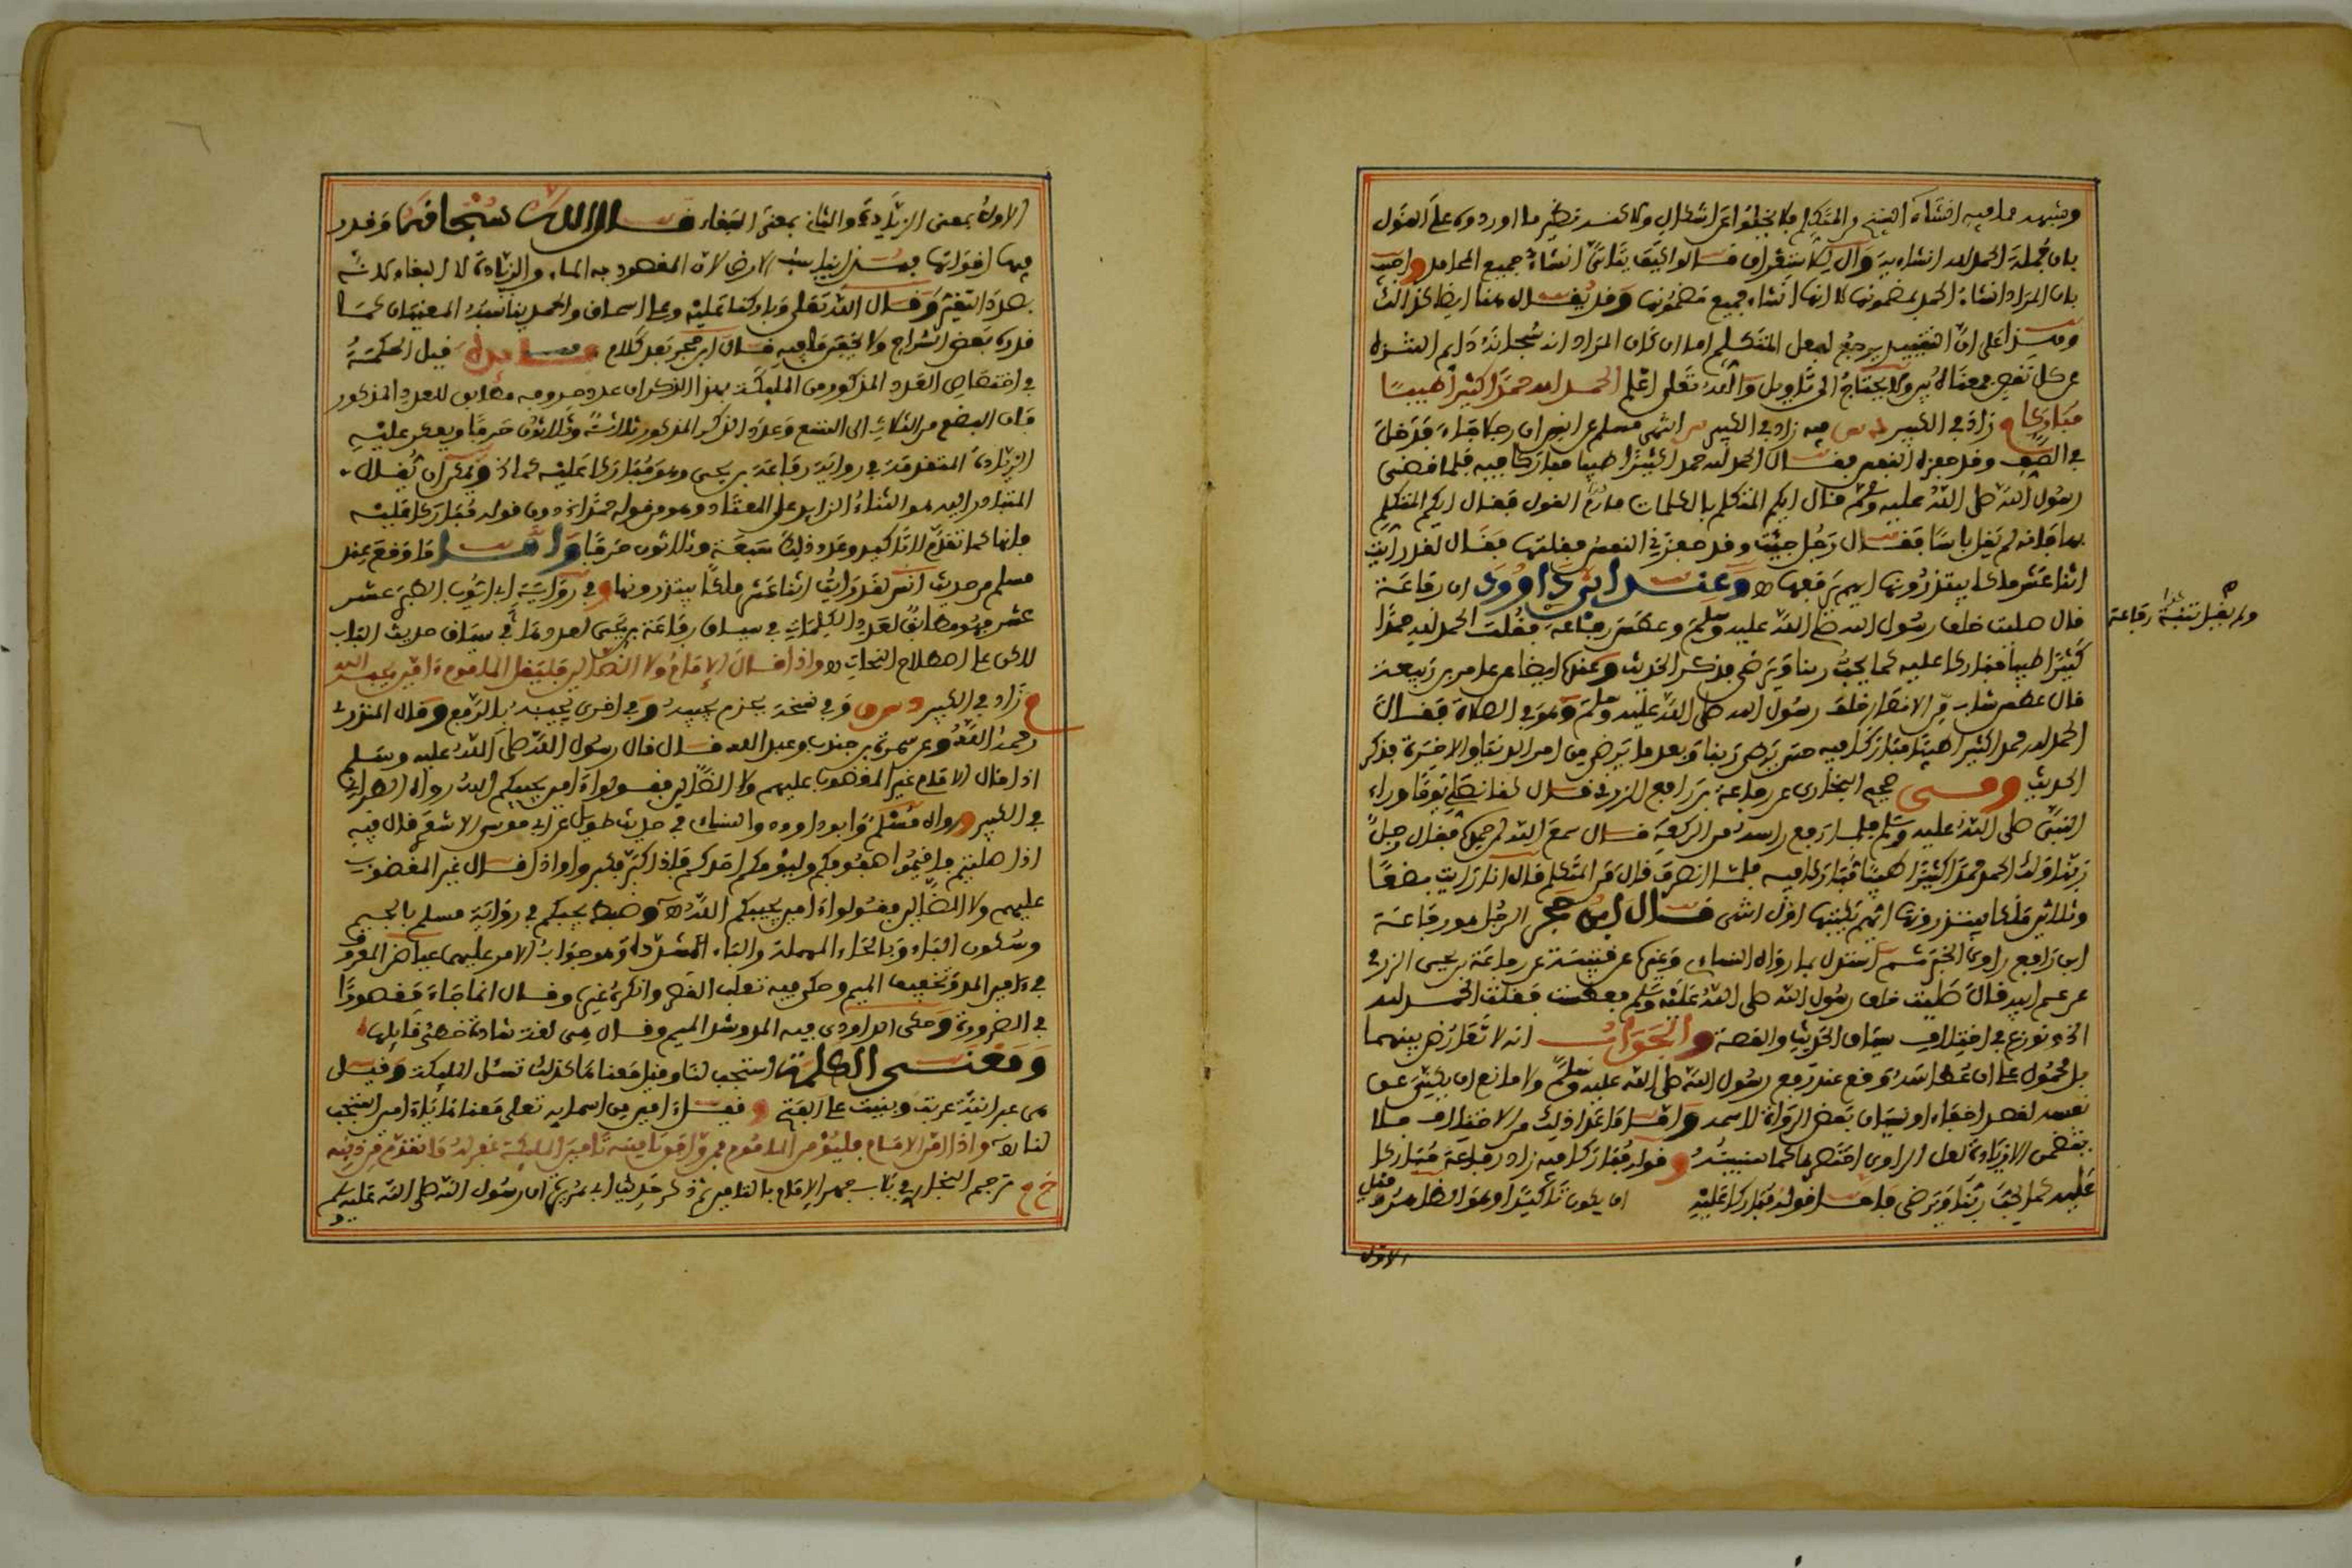 بان جملة الحمد لله انشائية
بان المراد انشاء الحمد بمضمونها لا انها انشاء لجميع مضمونها وقد يقال هنا ايضا كذلك
عن كل نقص معناه ولا يحتاج الى تاويل والله تعلى اعلم الحمد لله حمدا كثيرا طيبا
مباركا زاد في الكبير فيه زاد في الكبير مسلم عن انس ان رجلا جاء فدخل
في الصف وقد حفزه النفس فقال الحمد لله حمدا كثيرا طيبا مباركا فيه فلما قضى
رسول الله صلى الله عليه وسلم قال ايكم المتكلم بالكلمات فارم القوم فقال ايكم المتكلم
بها فانه لم يقل باسا فقال رجل جئت وقد حفزني النفس فقلتها فقال لقد رايت
اثنا عشر ملكا يبتدرونها ايهم يرفعها وعند ابي داوود ان رفاعة
قال صليت خلف رسول الله صلى الله عليه وسلم وعطس رفاعة فقلت الحمد لله حمدا
ولم يقل قتيبة رفاعة
كثيرا طيبا مباركا عليه كما يحب ربنا ويرضى فذكر الحديث وعنده ايضا عن عامر بن ربيعة
قال عطس شاب من الانصار خلف رسول الله صلى الله عليه وسلم وهو في الصلاة فقال
الحمد لله حمدا كثيرا طيبا مباركا فيه حتى يرضى ربنا وبعد ما يرضى من امر الدنيا والاخرة فذكر
الحديث وفي صحيح البخاري عن رفاعة بن رافع الزرقي قال كنا نصلي يوما وراء
النبي صلى الله عليه وسلم فلما رفع راسه من الركعة قال سمع الله لمن حمده فقال رجل
ربنا ولك الحمد حمدا كثيرا طيبا مباركا فيه فلما انصرف قال من المتكلم قال انا رايت بضعا
وثلاثين ملكا يبتدرونها ايهم يكتبها اول انتهى قال ابن حجر الرجل هو رفاعة
ابن رافع راوي الخبر ثم استدل بما رواه النساء وغيره عن قتيبة عن رفاعة بن يحيى الزرقي
عن عم ابيه قال صليت خلف رسول الله صلى الله عليه وسلم فعطست فقلت الحمد لله
الخ ونوزع في اختلاف سياق الحديث والقصة والجواب انه لا تعارض بينهما
بل محمول على ان عطاسه وقع عند رفع رسول الله صلى الله عليه وسلم ولا مانع ان يكنى عن
نفسه لقصد اخفاء او نسيان بعض الرواة لاسمه واما ما عدا ذلك من الاختلاف فلا
يتضمن الا زيادة لعل الراوي اختصرها كما سنبينه وقوله مباركا فيه زاد رفاعة مباركا
عليه كما يحب ربنا ويرضى فاما قوله مباركا عليه ان يكون تاكيدا وهو الظاهر وقيل
الاول
الاول بمعنى الزيادة والثاني بمعنى البقاء قال الله سبحانه وقدر
فيها اقواتها فهذا يناسب الارض لان المقصود به الماء والزيادة لا البقاء لانه
بصدد التغير وقال الله تعلى وباركنا عليه وعلى اسحاق والحمد يناسبه المعنيان كما
قرره بعض الشراح ولا يخفى ما فيه قال ابن حجر بعد كلام فايدة قيل الحكمة
في اختصاص العدد المذكور من المليكة بهذا الذكر ان عدد حروفه مطابق للعدد المذكور
فان البضع من الثلاث الى التسع وعدد الذكر المذكور ثلاثة وثلاثون حرفا ويعكر عليه
الزيادة المتقدمة في رواية رفاعة بن يحيى وهو مباركا عليه كما الخ ويمكن ان يقال
المتبادر اليه هو الثناء الزايد على المعتاد وهو من قوله حمدا الخ دون قوله مباركا عليه
فانها كما تقدم للتاكيد وعدد ذلك سبعة وثلاثون حرفا واما ما وقع عند
مسلم من حديث انس لقد رايت اثنا عشر ملكا يبتدرونها وفي رواية ابي ايوب الطبر عشر
عشر فهو مطابق لعدد الكلمات في سياق رفاعة بن يحيى لعددها في سياق حديث الباب
لكن على اصطلاح النحاة واذا قال الامام ولا الضالين فليقل الماموم امين يحبه الله
زاد في الكبير وفي نسخة بجزم يجبه وفي اخرى يجيبه بالرفع وقال المنذري
رحمه الله وعن سمرة بن جندب وعبد الله قال قال رسول الله صلى الله عليه وسلم
اذا قال الامام غير المغضوب عليهم ولا الضالين فقولوا امين يجبكم الله رواه الطبراني
في الكبير ورواه مسلم وابو داوود والنساء في حديث طويل عن ابي موسى الاشعري قال فيه
اذا صليتم فاقيموا صفوفكم وليؤمكم احدكم فاذا كبر فكبروا واذا قال غير المغضوب
عليهم ولا الضالين فقولوا امين يجبكم الله وضبط يجبكم في رواية مسلم بالجيم
وسكون الباء وبالحاء المهملة والباء المشددة وهو جواب الامر عليهما عياض المعروف
في امين المد وتخفيف الميم وحكى فيه ثعلب القصر وانكره غيره وقال انما جاء مقصورا
في الضرورة وحكى الداودي فيه المد وشد الميم وقال هي لغة شاذة خطئ قايلها
ومعنى الكلمة استجب لنا وقيل معناها كذلك نسئل المليكة وقيل
هي عبرانية عربت وبنيت على الفتح وقيل امين من اسمايه تعلى معناها يا امين استجب
لنا واذا امن الامام فليؤمن الماموم فمن وافق تامينه تامين المليكة غفر له ما تقدم من ذنبه
خ م ترجم البخاري في باب جهر الامام بالتامين ثم ذكر حديث ابي هريرة ان رسول الله صلى الله عليه وسلم